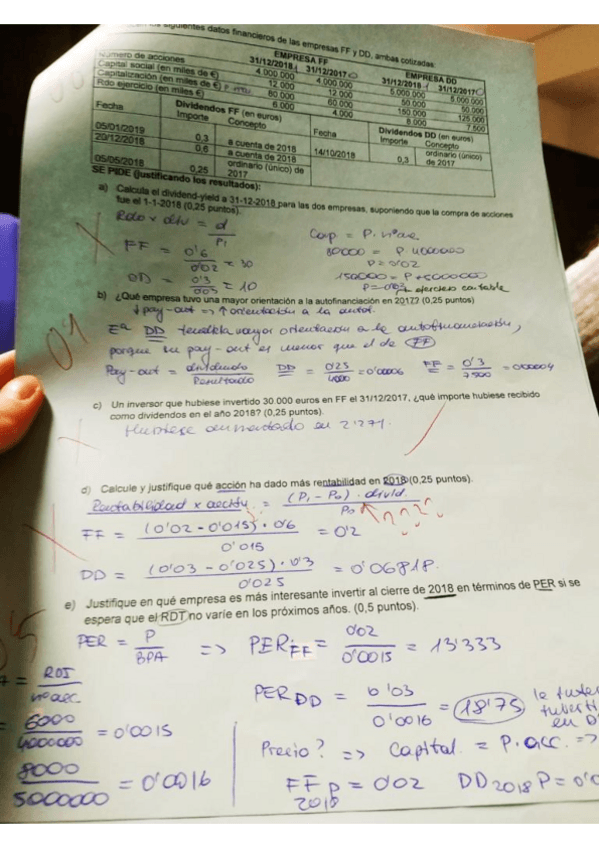 siguientes datos financieros de las empresas FF y DD, ambas cotizadas:
EMPRESA FF EMPRESA DD
31/12/2018 31/12/2017 31/12/2018 31/12/2017
Número de acciones 4.000.000 4.000.000 5.000.000 5.000.000
Capital social (en miles de €) 12.000 12.000 50.000 50.000
Capitalización (en miles de €) 80.000 60.000 150.000 125.000
Rdo ejercicio (en miles €) 6.000 4.000 8.000 7.500
Dividendos FF (en euros) Dividendos DD (en euros)
Fecha Importe Concepto Fecha Importe Concepto
05/01/2019 0,3 a cuenta de 2018 14/10/2018 0,3 ordinario (único) de 2017
20/12/2018 0,6 a cuenta de 2018
05/05/2018 0,25 ordinario (único) de 2017
SE PIDE (justificando los resultados):
a) Calcula el dividend-yield a 31-12-2018 para las dos empresas, suponiendo que la compra de acciones
fue el 1-1-2018 (0,25 puntos).
Rdo x div = d / P1
Cap = P. nº acc
FF = 0'6 / 0'02 = 30
80000 = P 4000000
P = 0'02
DD = 0'3 / 0'03 = 10
150000 = P * 5000000
P = 0'03 ejercicio contable
b) ¿Qué empresa tuvo una mayor orientación a la autofinanciación en 2017? (0,25 puntos)
↓ pay-out => ↑ orientación a la autof.
Eª DD tendría mayor orientación a la autofinanciación,
porque su pay-out es menor que el de FF
Pay-out = dividendo / Resultado DD = 0'25 / 4000 = 0'00006 FF = 0'3 / 7500 = 0'00004
c) Un inversor que hubiese invertido 30.000 euros en FF el 31/12/2017, ¿qué importe hubiese recibido
como dividendos en el año 2018? (0,25 puntos).
Hubiese aumentado en
d) Calcule y justifique qué acción ha dado más rentabilidad en 2018 (0,25 puntos).
Rentabilidad x acción = (P1 - P0) . divid. / P0 ???
FF = (0'02 - 0'015) · 0'6 / 0'015 = 0'2
DD = (0'03 - 0'025) · 0'3 / 0'025 = 0'06
e) Justifique en qué empresa es más interesante invertir al cierre de 2018 en términos de PER si se
espera que el RDT no varíe en los próximos años. (0,5 puntos).
PER = P / BPA => PER FF = 0'02 / 0'0015 = 13'333
= RDT / nº acc.
PER DD = 0'03 / 0'0016 = 18'75
= 6000 / 4000000 = 0'0015
Precio? => Capital. = P. acc. =>
8000 / 5000000 = 0'0016
FF 2018 P = 0'02 DD 2018 P = 0'0